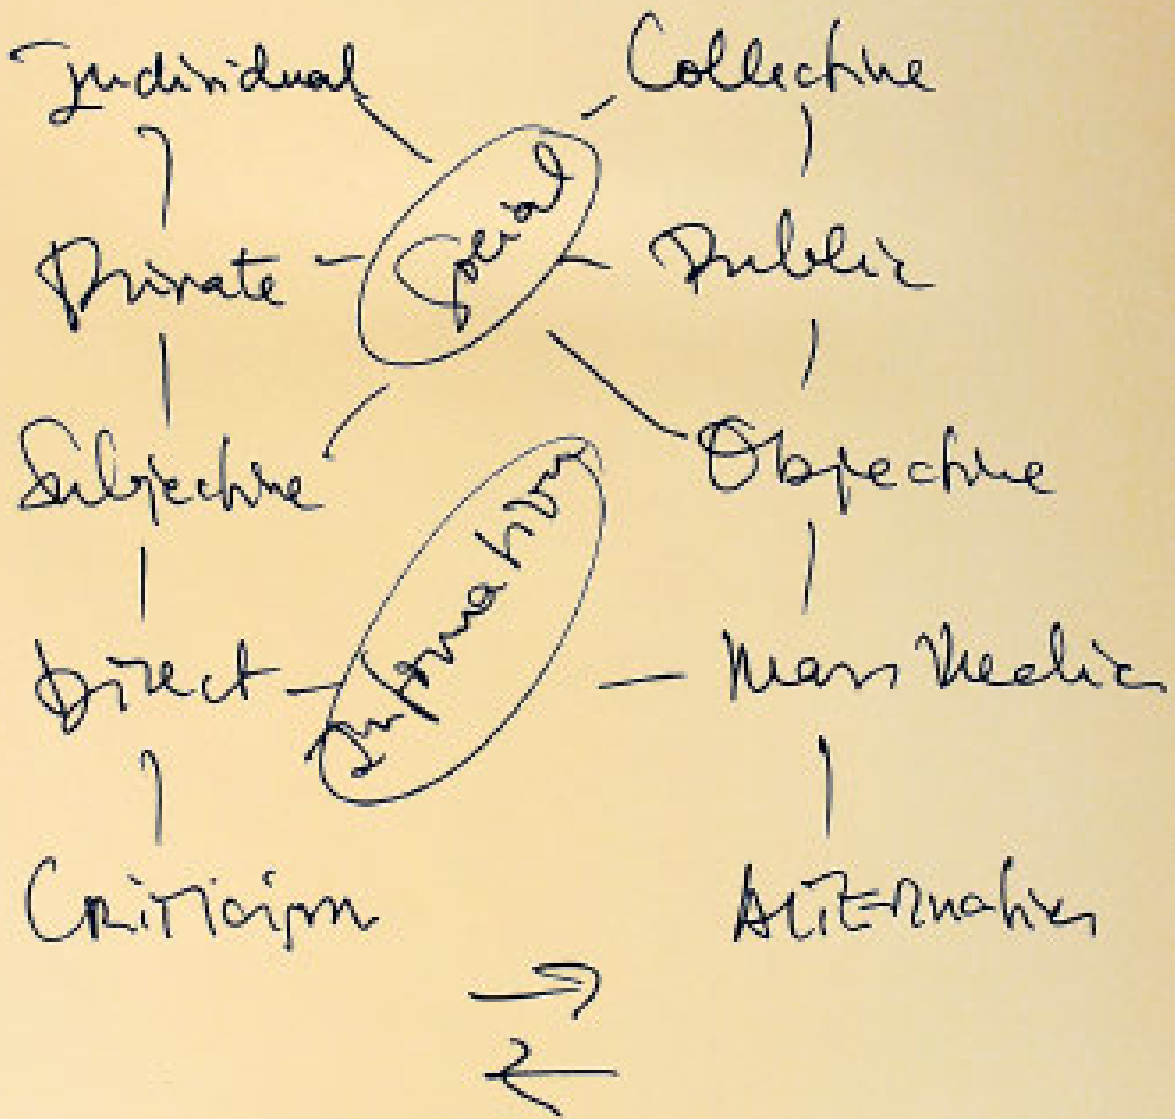 Individual Collective
Private Social Public
Subjective Objective
Direct Information Mass Media
Criticism Alternatives